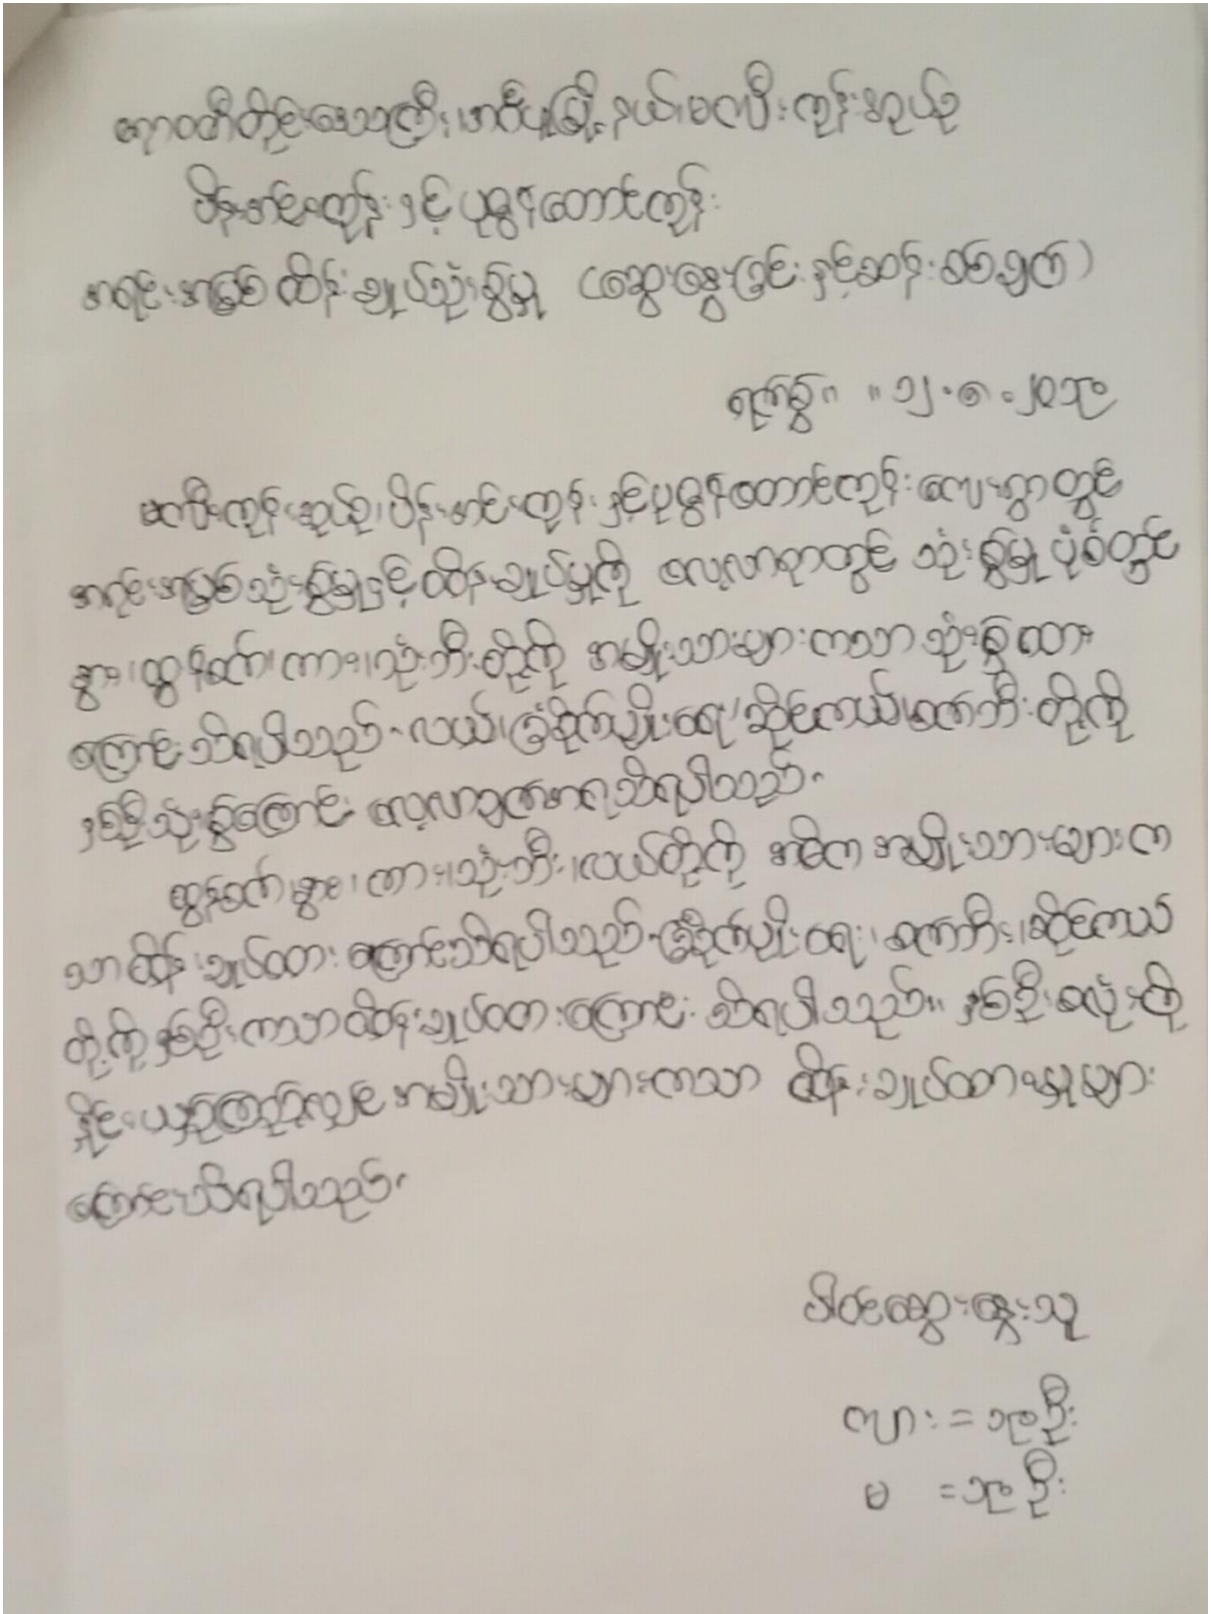 ဧရာဝတီတိုင်းဒေသကြီး၊ အင်္ဂပူမြို့နယ်၊ မလီးကုန်းဆုယ်စု
ပိန္နဲအင်းကုန်း နှင့် ပုဇွန်တောင်ကုန်း
အရင်းအမြစ် ထိန်းချုပ်သုံးစွဲမှု (ဆွေးနွေးခြင်း နှင့်ဆန်းစစ်ချက်)
ရက်စွဲ။ ။ ၁၂.၈.၂၀၁၉
ကုန်းဆုယ်စု၊ ပိန္နဲအင်းကုန်း နှင့်ပုဇွန်တောင်ကုန်း ကျေးရွာတွင်
အရင်းအမြစ်သုံးစွဲမှုနှင့်ထိန်းချုပ်မှုကို လေ့လာရာတွင် သုံးစွဲမှု ပုံစံတွင်
နွား၊ ထွန်စက်၊ ကား၊ သုံးဘီးတို့ကို အမျိုးသားများကသာ သုံးစွဲထား
ကြောင်းသိရပါသည်။ လယ်၊ ခြံစိုက်ပျိုးရေး၊ ဆိုင်ကယ်၊ စက်ဘီးတို့ကို
နှစ်ဦးသုံးစွဲကြောင်း လေ့လာချက်အရသိရပါသည်။
ထွန်စက်၊ နွား၊ ကား၊ သုံးဘီး၊ လယ်တို့ကို အဓိက အမျိုးသားများက
သာထိန်းချုပ်ထားကြောင်းသိရပါသည်။ ခြံစိုက်ပျိုးရေး၊ စက်ဘီး၊ ဆိုင်ကယ်
တို့ကိုနှစ်ဦးကသာထိန်းချုပ်ထားကြောင်း သိရပါသည်။ နှစ်ဦးစလုံးကို
နှိုင်းယှဉ်ကြည့်လျှင် အမျိုးသားများကသာ ထိန်းချုပ်ထားမှုများ
ကြောင်းသိရပါသည်။
ပါဝင်ဆွေးနွေးသူ
ကျား = ၁၉ ဦး
မ = ၁၉ ဦး